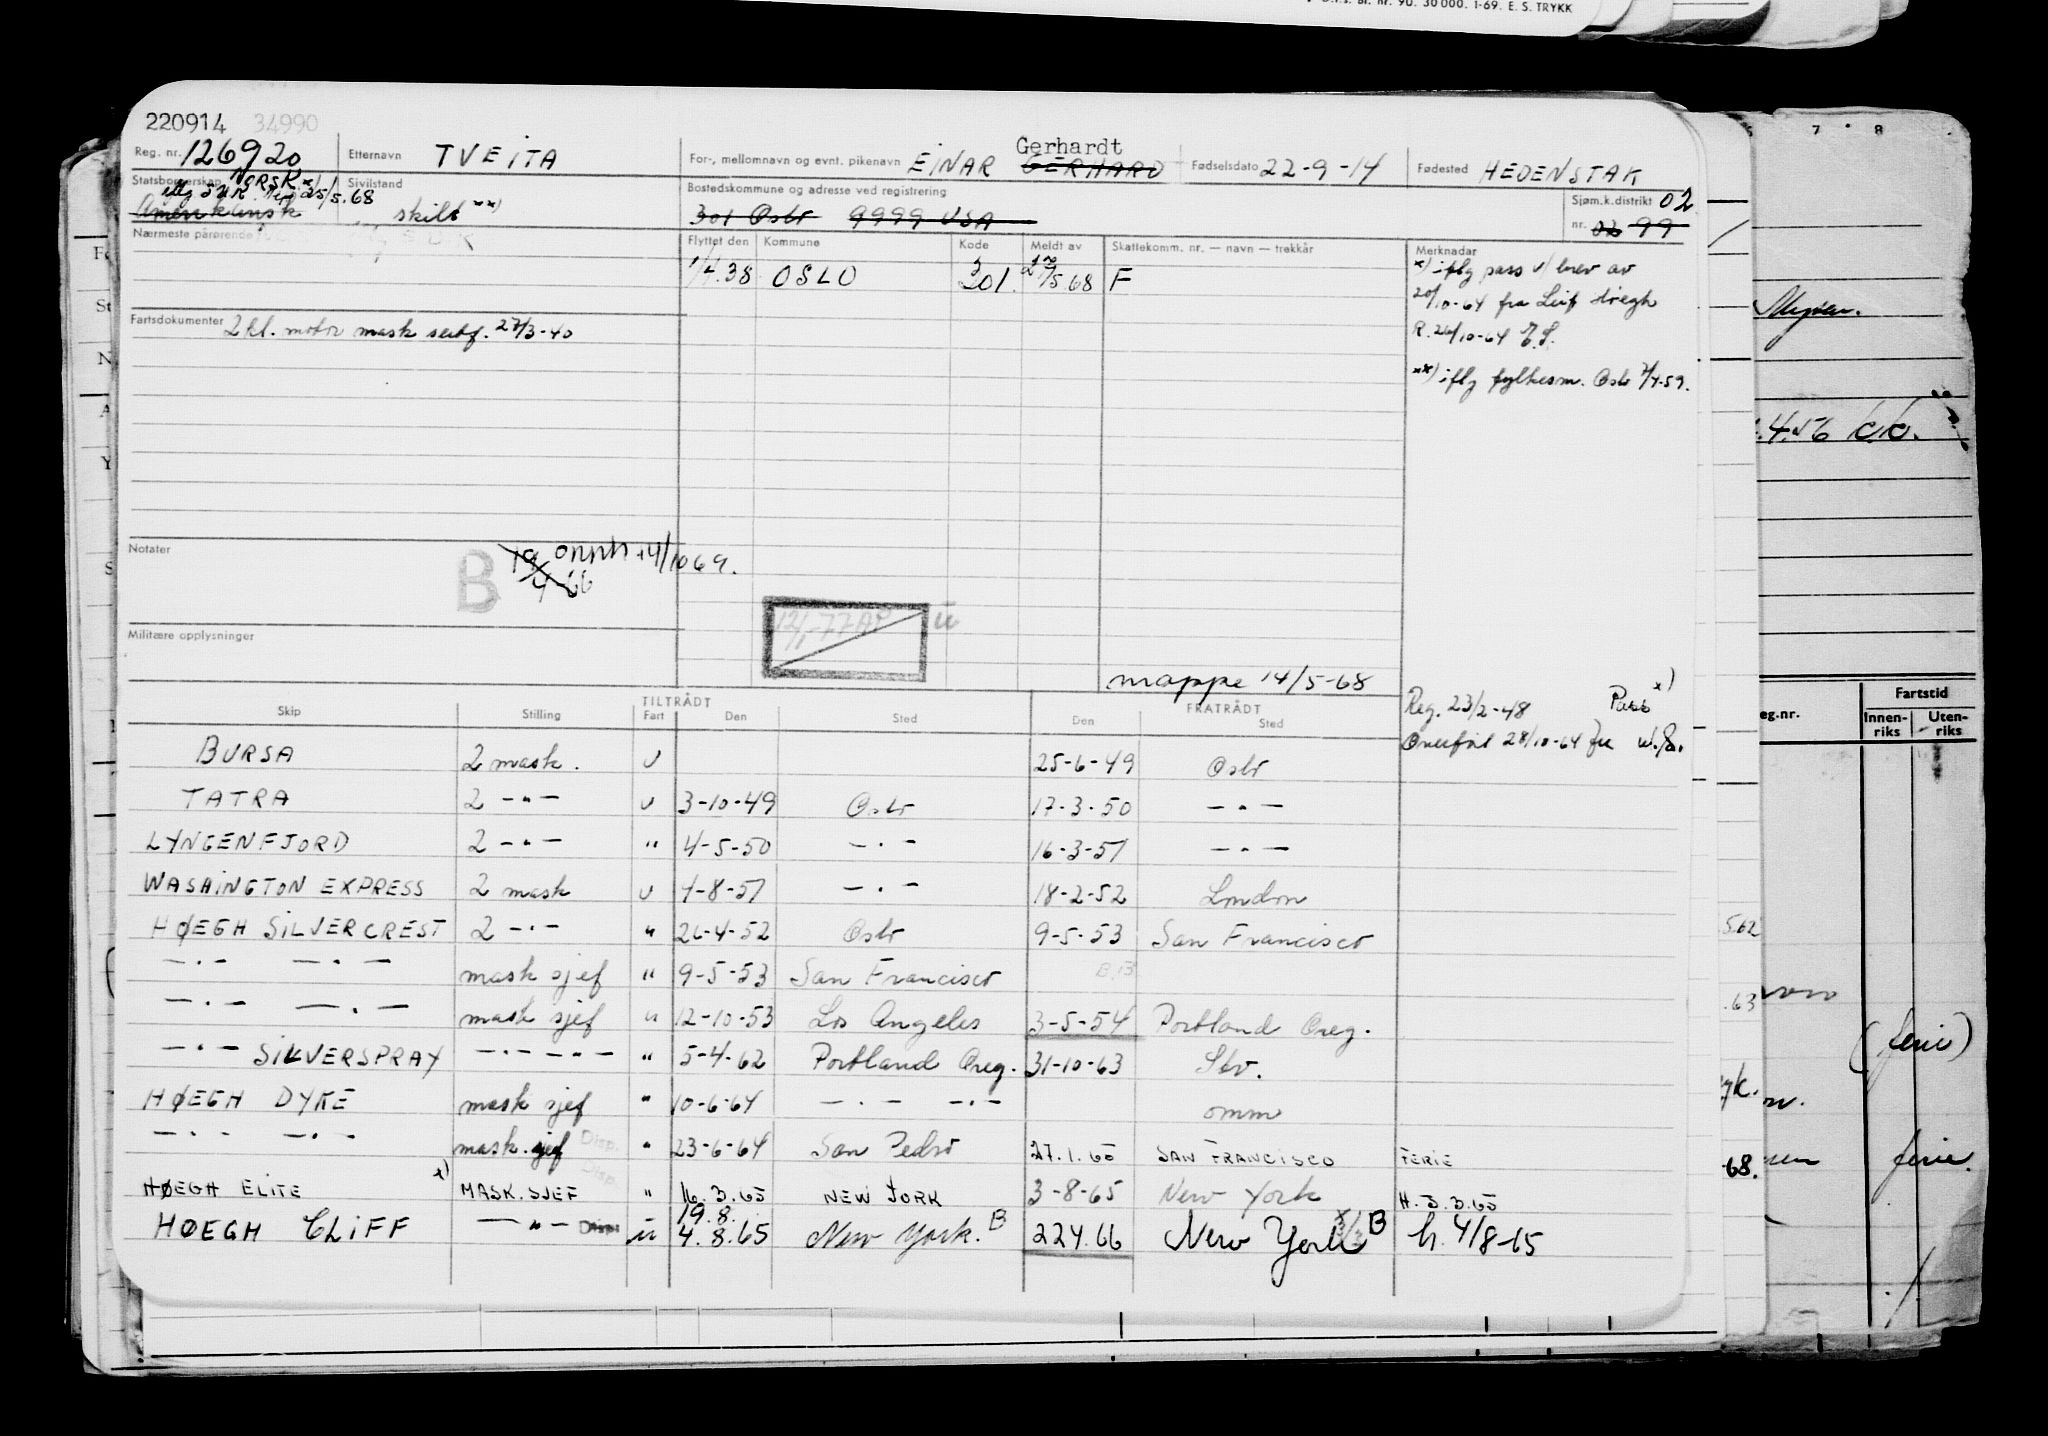 D.T.S. Bl. nr. 90. 30 000. 1-69. E. S. TRYKK
220914 34990
Reg. nr. 126920 Etternavn TVEITA For-, mellomnavn og evnt. pikenavn EINAR GERHARD Gerhardt Fødselsdato 22-9-14 Fødested HEDENSTAK
Statsborgerskap NORSK x) Sivilstand Bostedskommune og adresse ved registrering Sjøm.k.distrikt 02
25/5.68
Amerikansk skilt xx) 301 Oslo 9999 USA nr. 02 99
Nærmeste pårørende Flyttet den Kommune Kode Meldt av Skattekomm. nr. — navn — trekkår Merknader
1/4.38 OSLO 301. 5 68 F
x) iflg pass v/ brev av
20/10-64 fra Leif Höegh
R. 26/10-64
xx) iflg fylkesm. Oslo 7/4-59.
Fartsdokumenter 2 kl. motor mask sertf. 27/3-40
Notater B 19/4-66 14/10 69.
12/1-77 AP ü
Militære opplysninger
mappe 14/5-68
Reg. 23/2-48 Pass x)
Overført 28/10-64 fra
TILTRÅDT FRATRÅDT
Skip Stilling Fart Den Sted Den Sted
BURSA 2 mask. U 25-6-49 Oslo
TATRA 2 — " — U 3-10-49 Oslo 17-3-50 — " —
LYNGENFJORD 2 — " — " 4-5-50 — " — 16-3-51 — " —
WASHINGTON EXPRESS 2 mask U 4-8-51 — " — 18-2-52 London
HØEGH SILVERCREST 2 — " — " 26-4-52 Oslo 9-5-53 San Francisco
— " — — " — mask sjef " 9-5-53 San Francisco B.13
— " — — " — mask sjef " 12-10-53 Los Angeles 3-5-54 Portland Oreg.
— " — SILVERSPRAY — " — " — " 5-4-62 Portland Oreg. 31-10-63 Stv.
HØEGH DYKE mask sjef " 10-6-64 — " — — " — omm
— " — — " — mask. sjef Disp. " 23-6-64 San Pedro 27.1.65 SAN FRANCISCO FERIE
HØEGH ELITE x) MASK. SJEF Disp. " 16.3.65 NEW YORK 3-8-65 New York H. 3.3.65
19.8.
HØEGH CLIFF — " — Disp. ü 4.8.65 New York. B 22.4.66 New York B h. 4/8-65
.4.56
Fartstid
eg.nr. Innen-riks Uten-riks
5.62
.63
(ferie)
68. ferie.